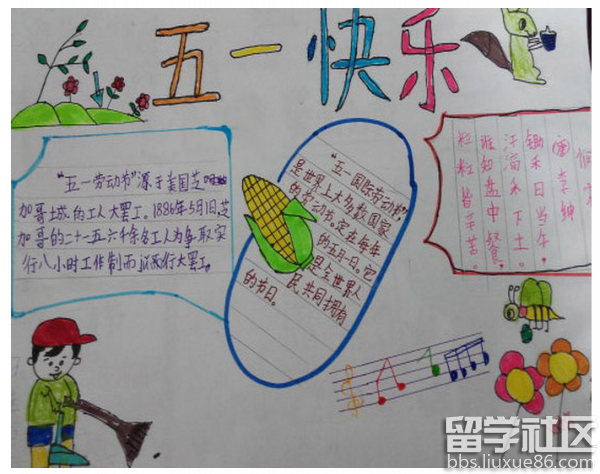 五一快乐
"五一劳动节"源于美国芝
加哥城的工人大罢工。1886年5月1日,芝
加哥的二十一五六千余名工人为争取实
行八小时工作制而行大罢工。
"五一国际劳动节"
是世界上大多数国家
的劳动节。定在每年
的五月一日。它
是全世界人
民共同拥有
的节日。
悯农
唐李绅
锄禾日当午。
汗滴禾下土。
谁知盘中餐。
粒粒皆辛苦。
留学社区
bbs.liuxue86.com